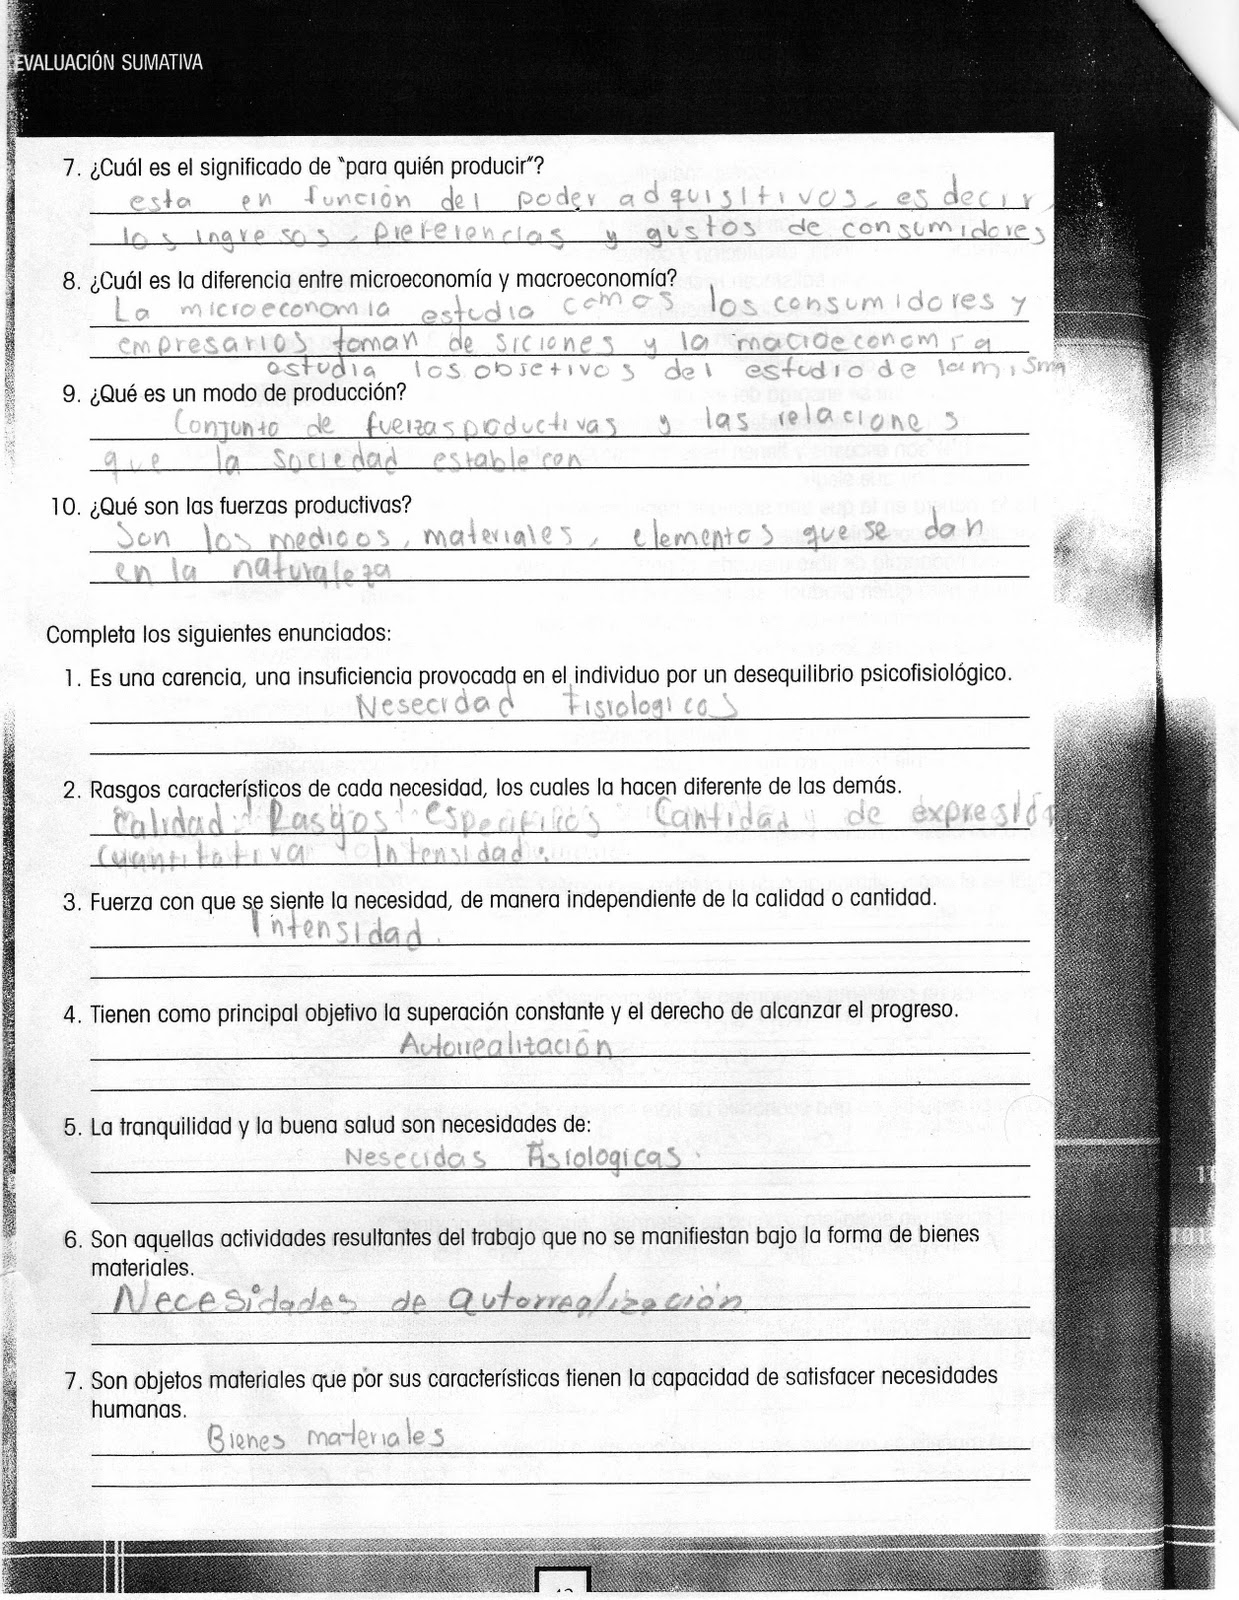 EVALUACIÓN SUMATIVA
7. ¿Cuál es el significado de "para quién producir"?
esta en función del poder adquisitivos, es decir,
los ingresos, preferencias y gustos de consumidores
8. ¿Cuál es la diferencia entre microeconomía y macroeconomía?
La microeconomia estudia comos los consumidores y
empresarios toman de siciones y la macroeconomia
estudia los objetivos del estudio de la misma
9. ¿Qué es un modo de producción?
Conjunto de fuerzas productivas y las relaciones
que la sociedad establecen
10. ¿Qué son las fuerzas productivas?
Son los medioos, materiales, elementos que se dan
en la naturaleza
Completa los siguientes enunciados:
1. Es una carencia, una insuficiencia provocada en el individuo por un desequilibrio psicofisiológico.
Nesecidad fisiologicos
2. Rasgos característicos de cada necesidad, los cuales la hacen diferente de las demás.
Calidad: Rasgos especificos Cantidad de expresión
cuantitativa y Intensidad.
3. Fuerza con que se siente la necesidad, de manera independiente de la calidad o cantidad.
Intensidad.
4. Tienen como principal objetivo la superación constante y el derecho de alcanzar el progreso.
Autorrealización
5. La tranquilidad y la buena salud son necesidades de:
Nesecidas Fisiologicas.
6. Son aquellas actividades resultantes del trabajo que no se manifiestan bajo la forma de bienes
materiales.
Necesidades de autorrealización
7. Son objetos materiales que por sus características tienen la capacidad de satisfacer necesidades
humanas.
Bienes materiales